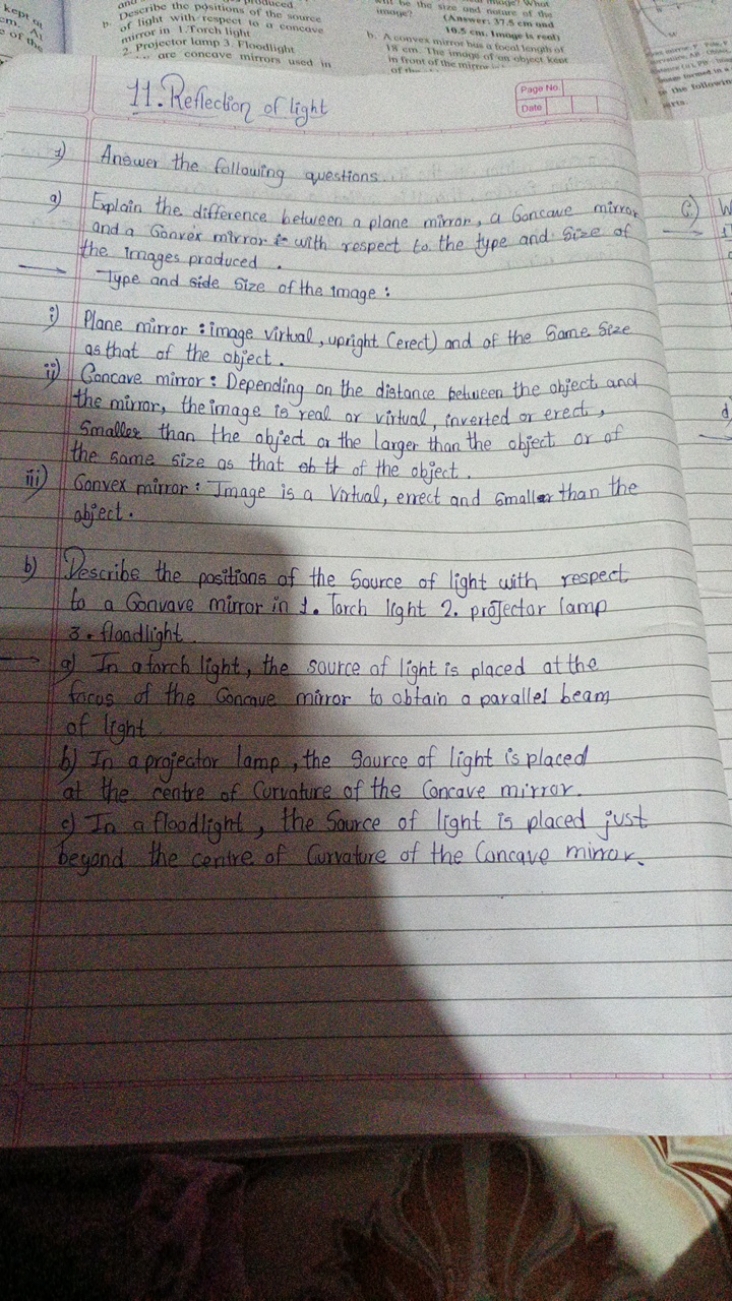 kept
and
produced.
b. Describe the positions of the source
of light with respect to a concave
mirror in 1.Torch light
2. Projector lamp 3. Floodlight
are concave mirrors used in
will be the size and nature of the
image?
(Answer: 37.5 cm and
10.5 cm. Image is real)
b. A convex mirror has a focal length of
18 cm. The image of an object kept
in front of the mirror
the followin
11. Reflection of light
Page No.
Date
1) Answer the following questions.
a) Explain the difference between a plane mirror, a Concave mirror
and a Convex mirror with respect to the type and Size of
the images produced.
Type and side Size of the image :
i) Plane mirror : image virtual, upright (erect) and of the Same Size
as that of the object.
ii) Concave mirror : Depending on the distance between the object and
the mirror, the image is real or virtual, inverted or erect,
Smaller than the object or the larger than the object or of
the same size as that ob th of the object.
iii) Convex mirror : Image is a Virtual, errect and Smaller than the
object.
b) Describe the positions of the Source of light with respect
to a Convave mirror in 1. Torch light 2. projector lamp
3. floodlight.
a) In a torch light, the source of light is placed at the
focus of the Concave mirror to obtain a parallel beam
of light.
b) In a projector lamp, the Source of light is placed
at the centre of Curvature of the Concave mirror.
c) In a floodlight, the Source of light is placed just
beyond the centre of Curvature of the Concave mirror.
c)
d)